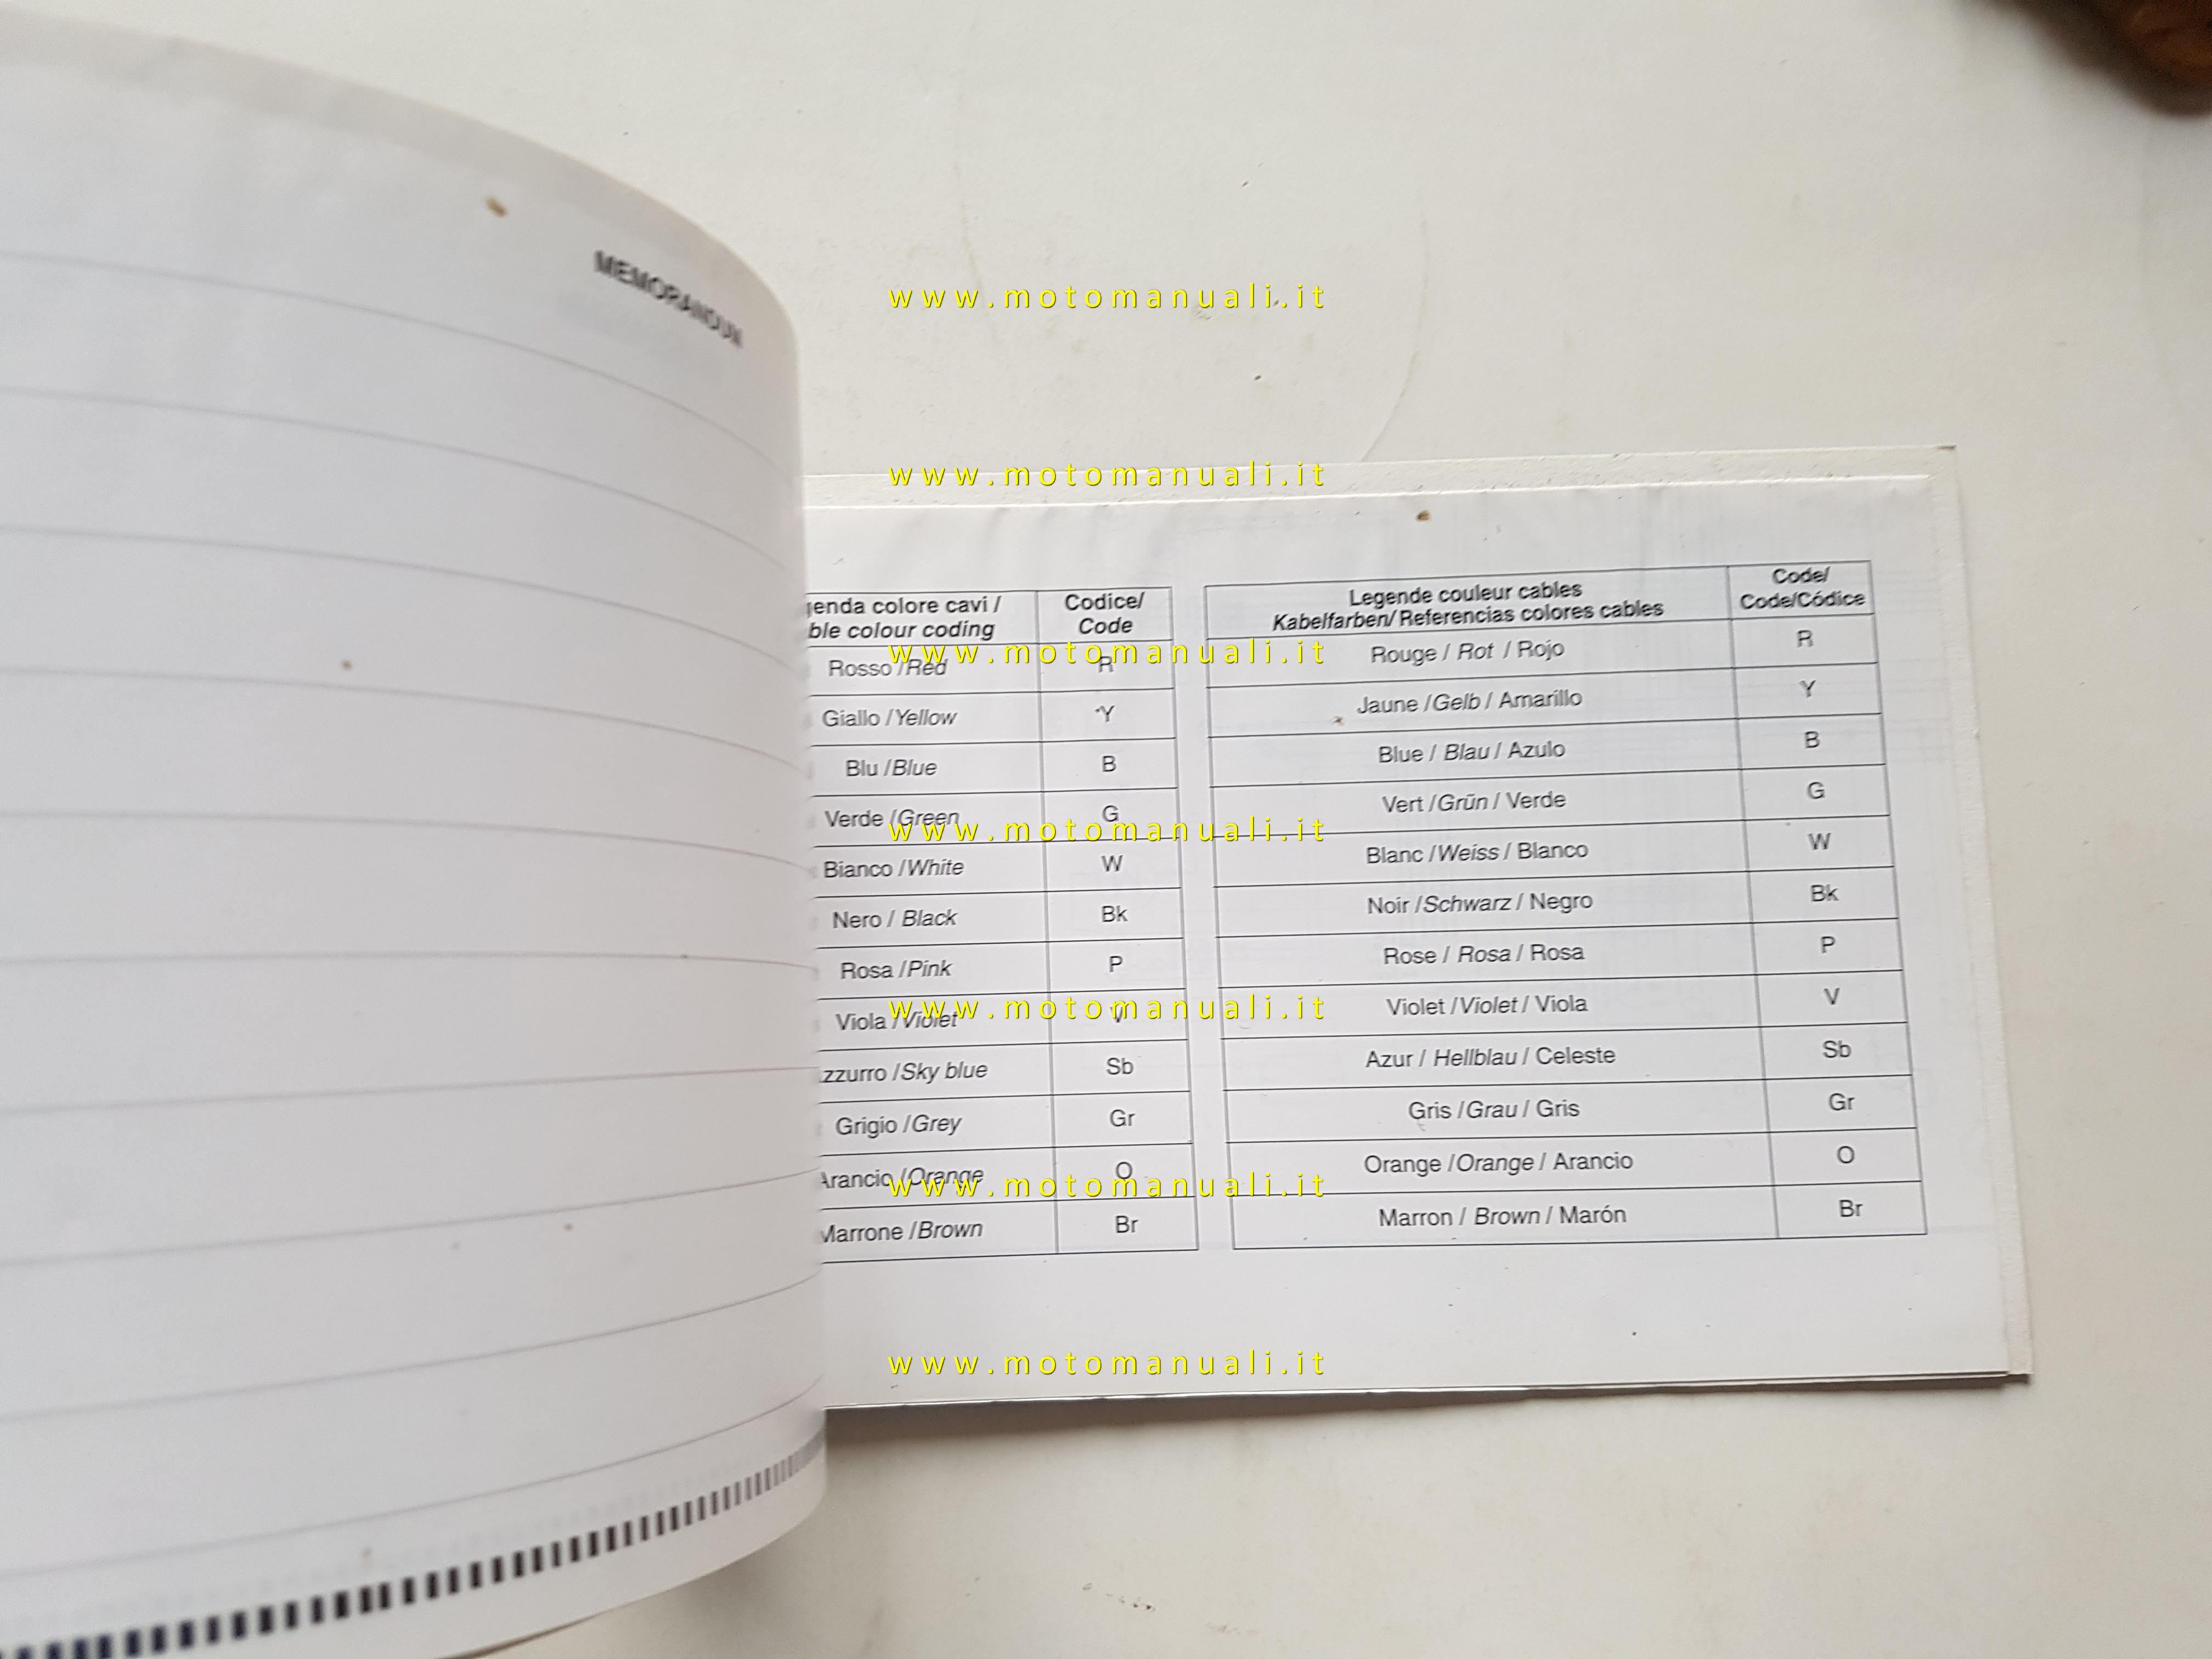 MEMORANDUM
www.motomanuali.it
www.motomanuali.it
genda colore cavi / Codice/
ble colour coding Code
Rosso /Red R
Giallo /Yellow Y
Blu /Blue B
Verde /Green G
Bianco /White W
Nero / Black Bk
Rosa /Pink P
Viola /Violet V
zzurro /Sky blue Sb
Grigio /Grey Gr
Arancio /Orange O
Marrone /Brown Br
Legende couleur cables Code/
Kabelfarben/ Referencias colores cables Code/Códice
Rouge / Rot / Rojo R
Jaune /Gelb / Amarillo Y
Blue / Blau / Azulo B
Vert /Grün / Verde G
Blanc /Weiss / Blanco W
Noir /Schwarz / Negro Bk
Rose / Rosa / Rosa P
Violet /Violet / Viola V
Azur / Hellblau / Celeste Sb
Gris /Grau / Gris Gr
Orange /Orange / Arancio O
Marron / Brown / Marón Br
www.motomanuali.it
www.motomanuali.it
www.motomanuali.it
www.motomanuali.it
www.motomanuali.it